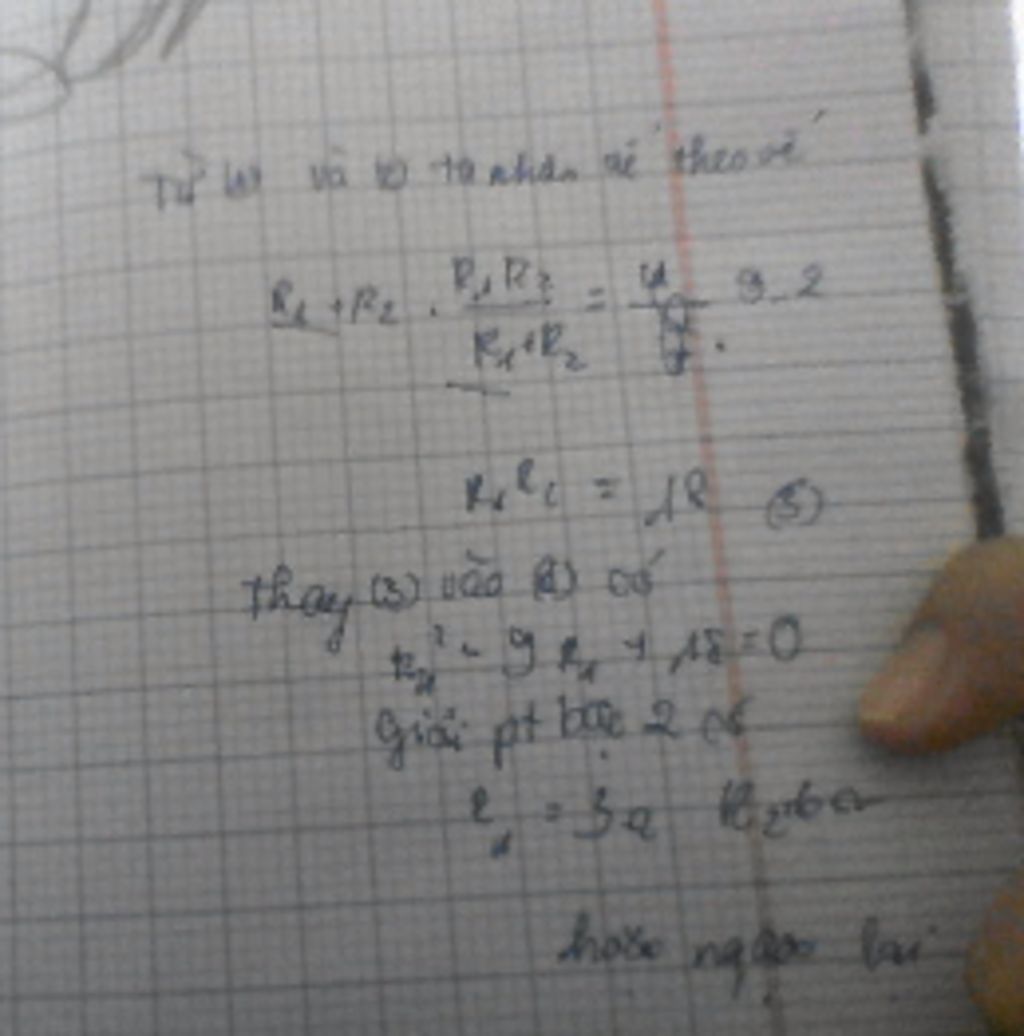 Từ (1) và (2) ta nhân vế theo vế
R₁ + R₂ . R₁R₂ / R₁+R₂ = 9.2
R₁R₂ = 18 (3)
Thay (3) vào có
R₁² - 9R₁ + 18 = 0
giải pt bậc 2 có
R₁ = 3Ω R₂ = 6Ω
hoặc ngược lại